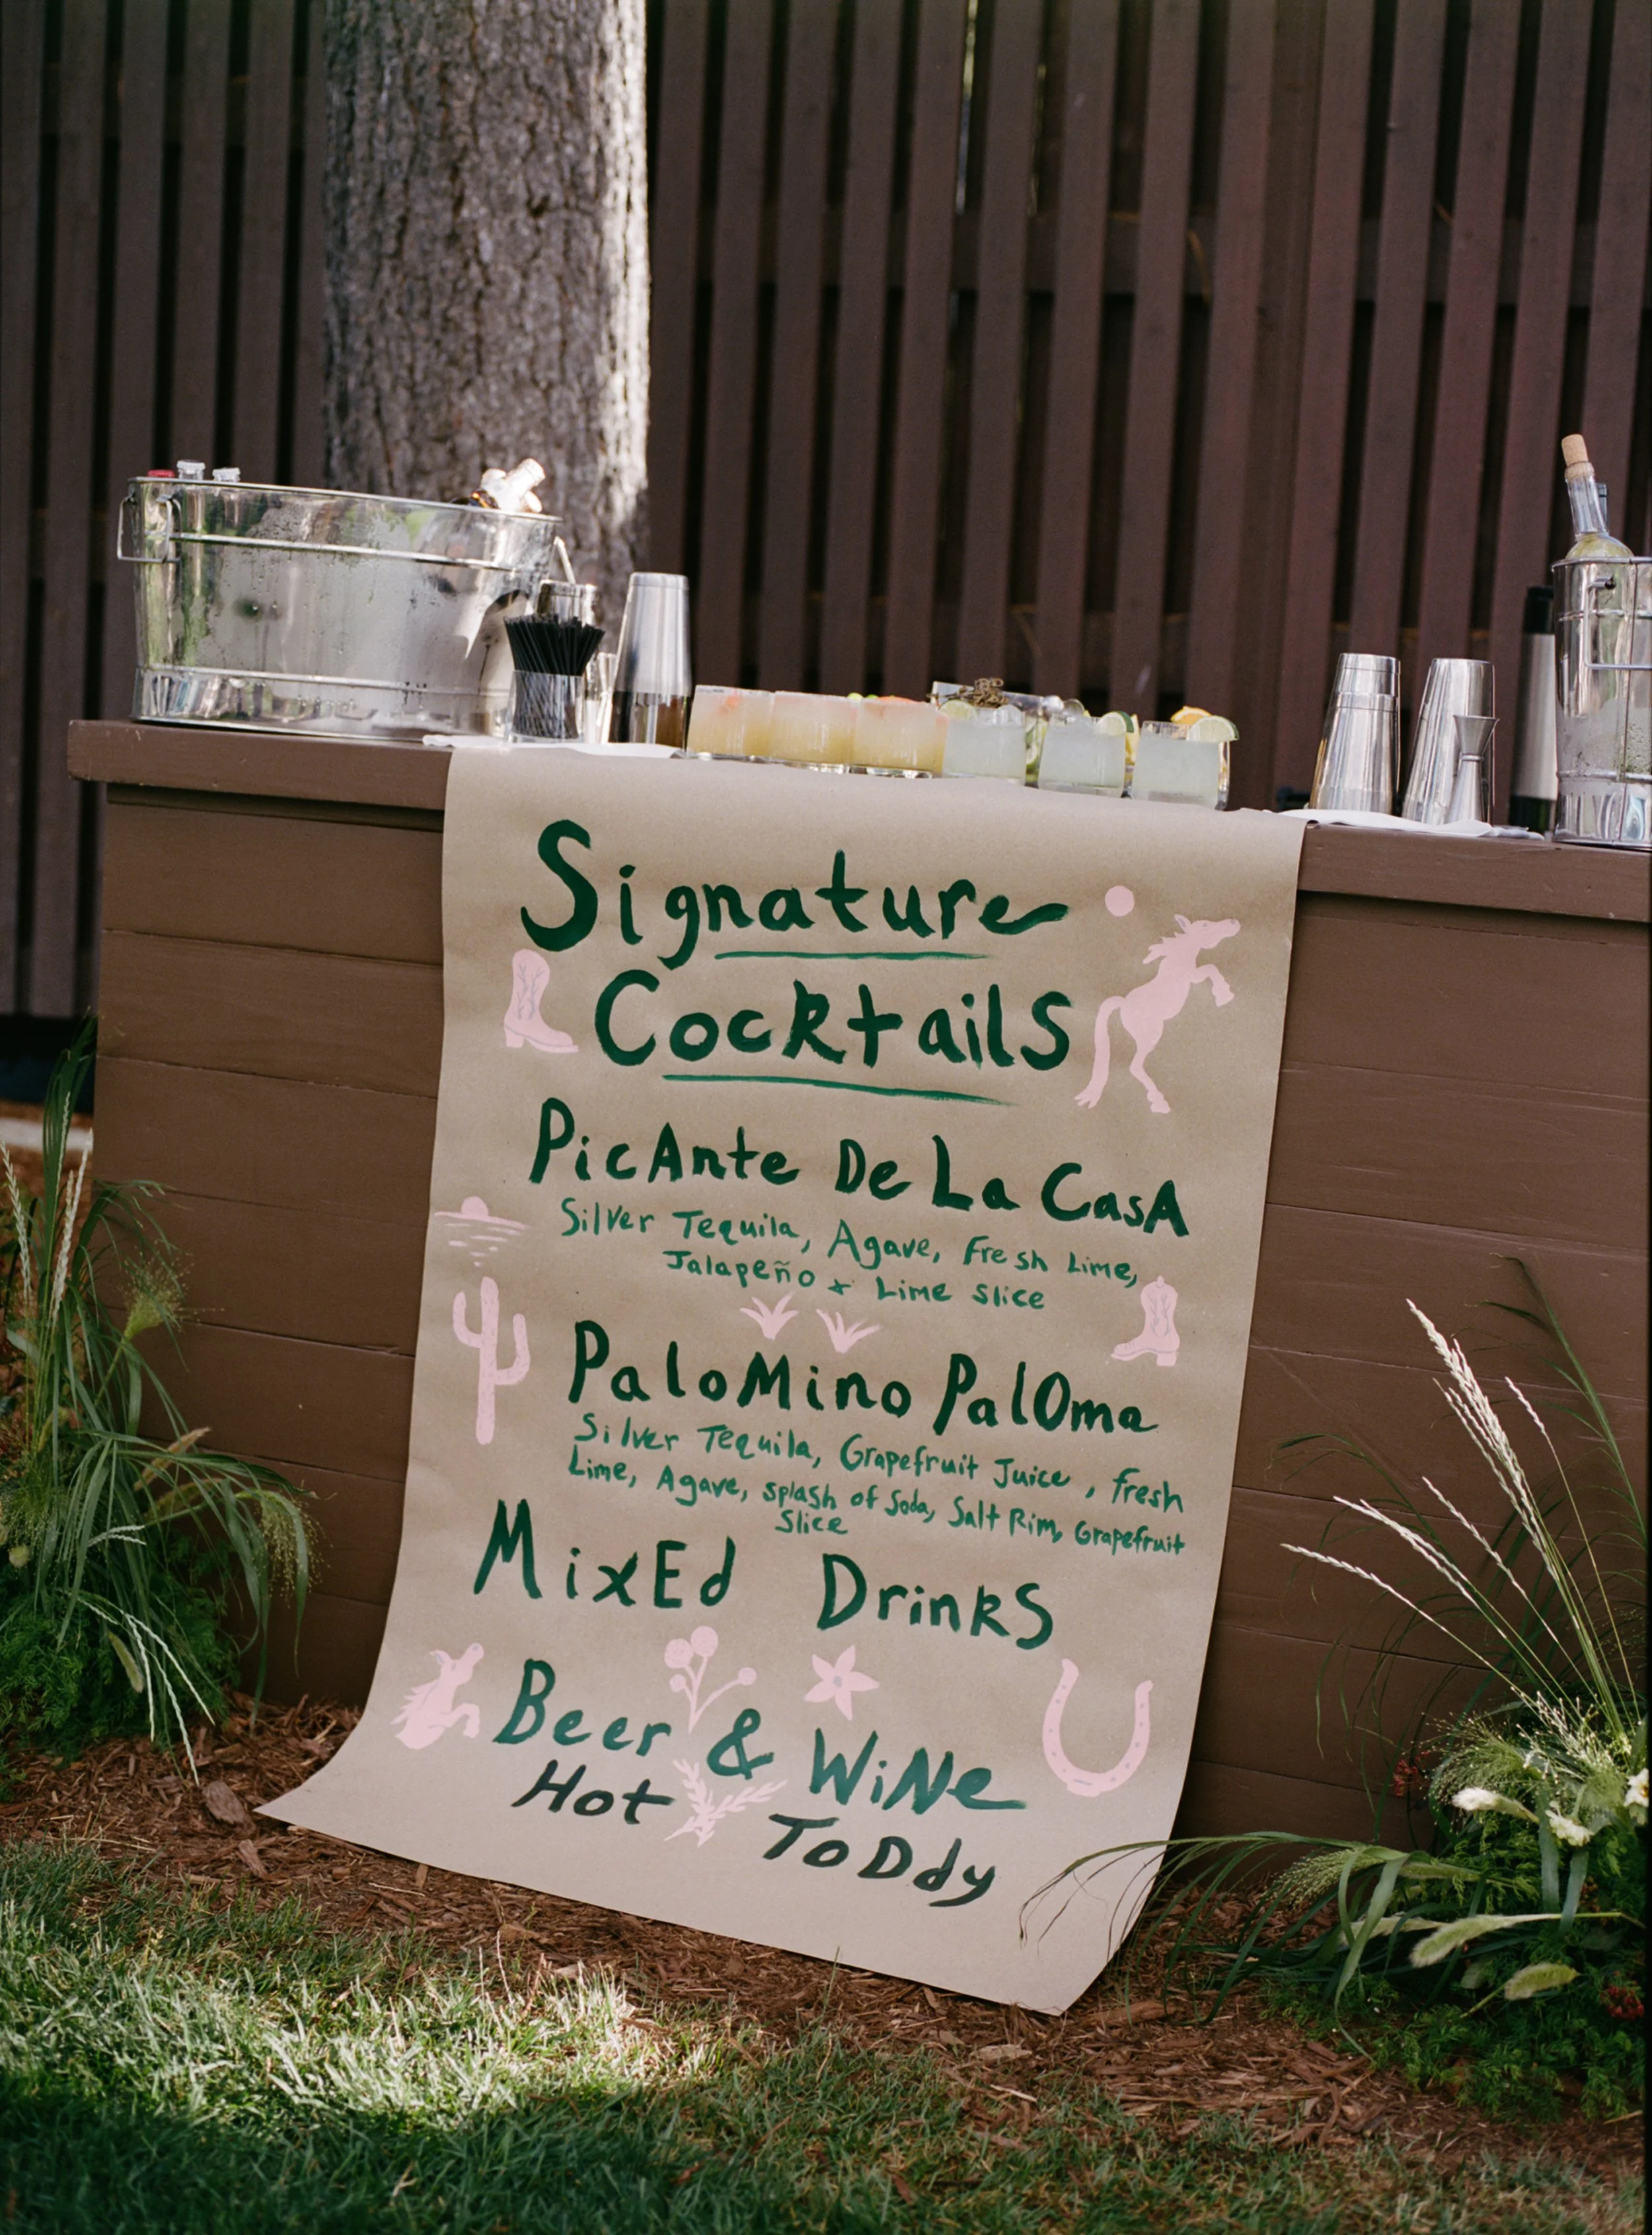 Signature
Cocktails
PicAnte De La CasA
Silver Tequila, Agave, Fresh Lime,
Jalapeño + Lime Slice
PaloMino PalOma
Silver Tequila, Grapefruit Juice, Fresh
Lime, Agave, splash of Soda, Salt Rim, Grapefruit
Slice
MixEd DrinkS
Beer & WiNe
Hot ToDdy